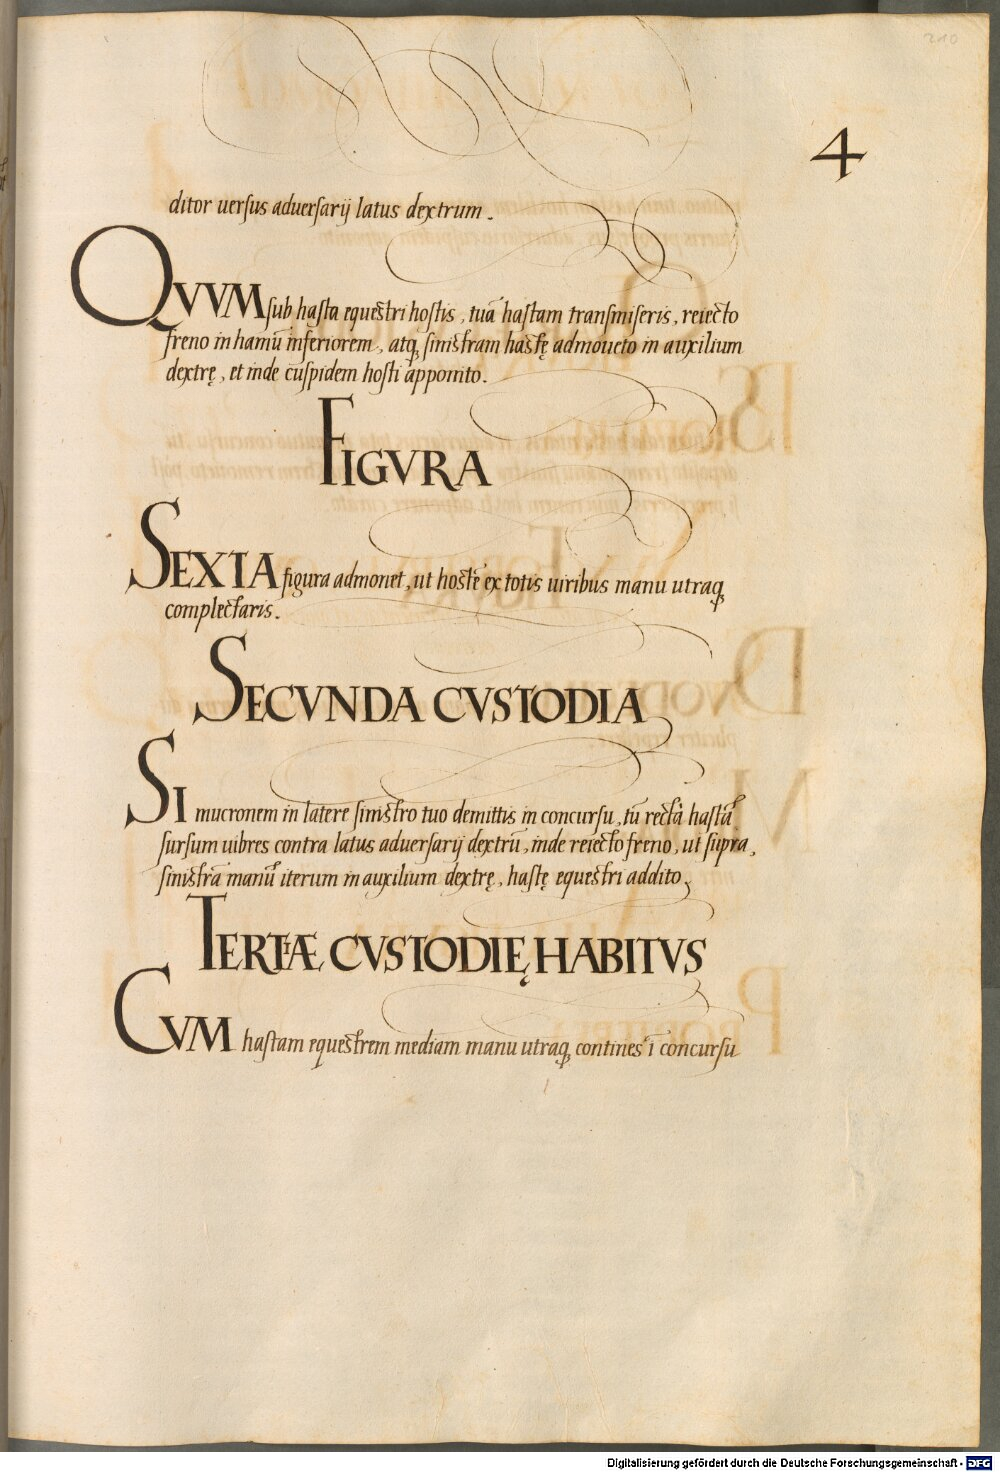 210
4
ditor uersus aduersarij latus dextrum.
QVVM sub hasta equestri hostis, tuã hastam transmiseris, reiecto
freno in hamũ inferiorem, atq; sinistram hastę admoueto in auxilium
dextrę, et inde cuspidem hosti apponito.
FIGVRA
SEXTA figura admonet, ut hostẽ ex totis uiribus manu utraq;
complectaris.
SECVNDA CVSTODIA
SI mucronem in latere sinistro tuo demittis in concursu, tũ rectã hastã
sursum uibres contra latus aduersarij dextrũ, inde reiecto freno, ut supra,
sinistrã manũ iterum in auxilium dextrę, hastę equestri addito.
TERTIÆ CVSTODIĘ HABITVS
CVM hastam equestrem mediam manu utraq; contines ĩ concursu
Digitalisierung gefördert durch die Deutsche Forschungsgemeinschaft - DFG